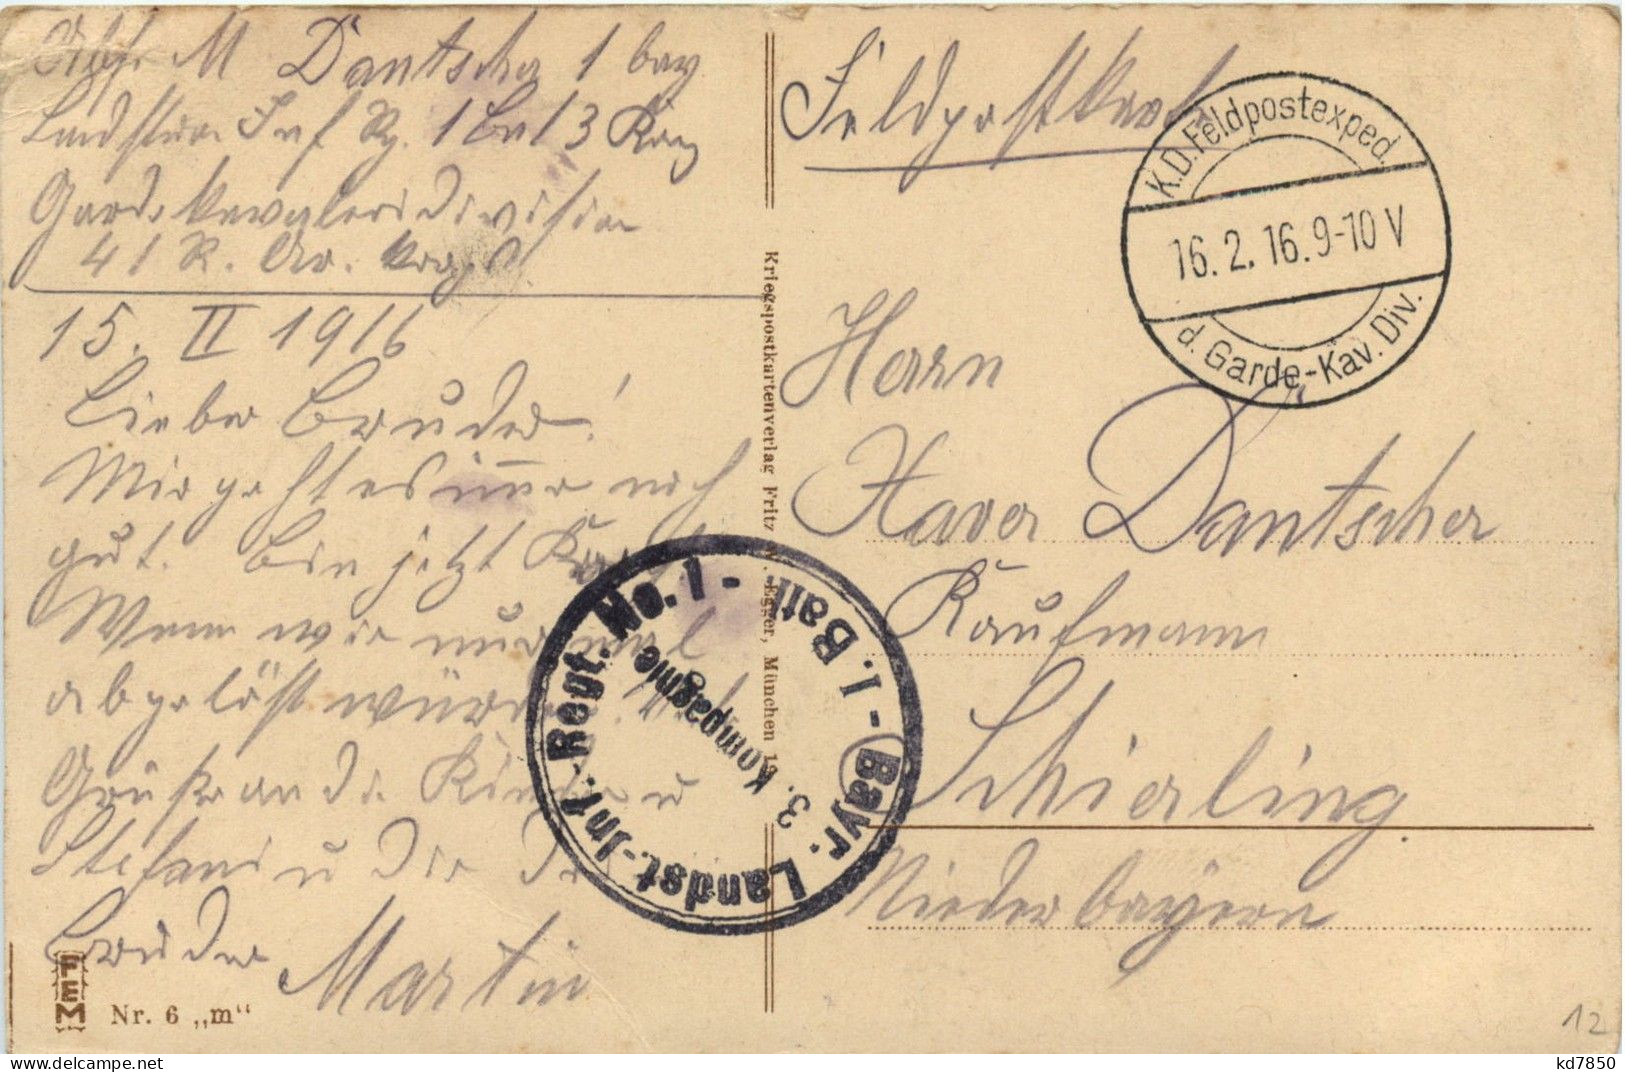 Abs. M Dantscher 1 bay
Landsturm Inf Rg. 1 Bat 3 Komp
Gardekavalleriedivision
41 R. Ar. Korps
15. II 1916
Lieber Bruder!
Mir geht es immer noch
gut. Bin jetzt
Wenn wir nur mal
abgelöst würden.
Grüße an die Kinder u
Stefani u Dir Dein
Bruder Martin
Nr. 6 „m“
Kriegspostkartenverlag Fritz Egger, München 19
Bayr. Landst.-Inf.-Regt. No. 1 - I. Batl. -
3. Kompagnie
Feldpostkarte
K.D. Feldpostexped.
16.2.16.9-10 V
d. Garde-Kav. Div.
Herrn
Xaver Dantscher
Kaufmann
Schierling
Niederbayern
12
kd7850